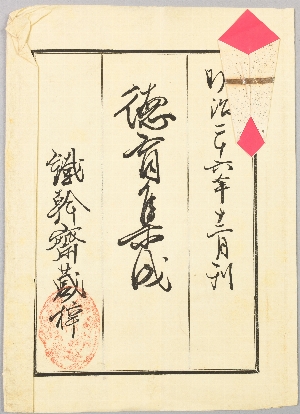 明治二十六年十二月刊
徳育集成
鐵幹齋蔵梓